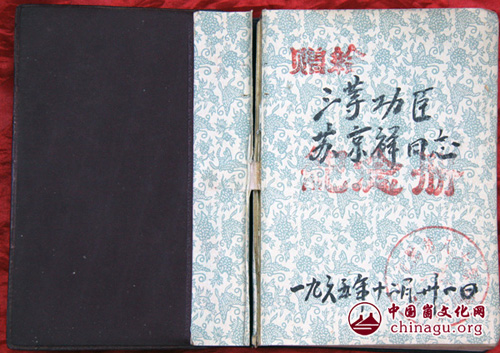 赠给
三等功臣
苏京祥同志
纪念册
一九六五年十二月廿一日
中国崮文化网
chinagu.org